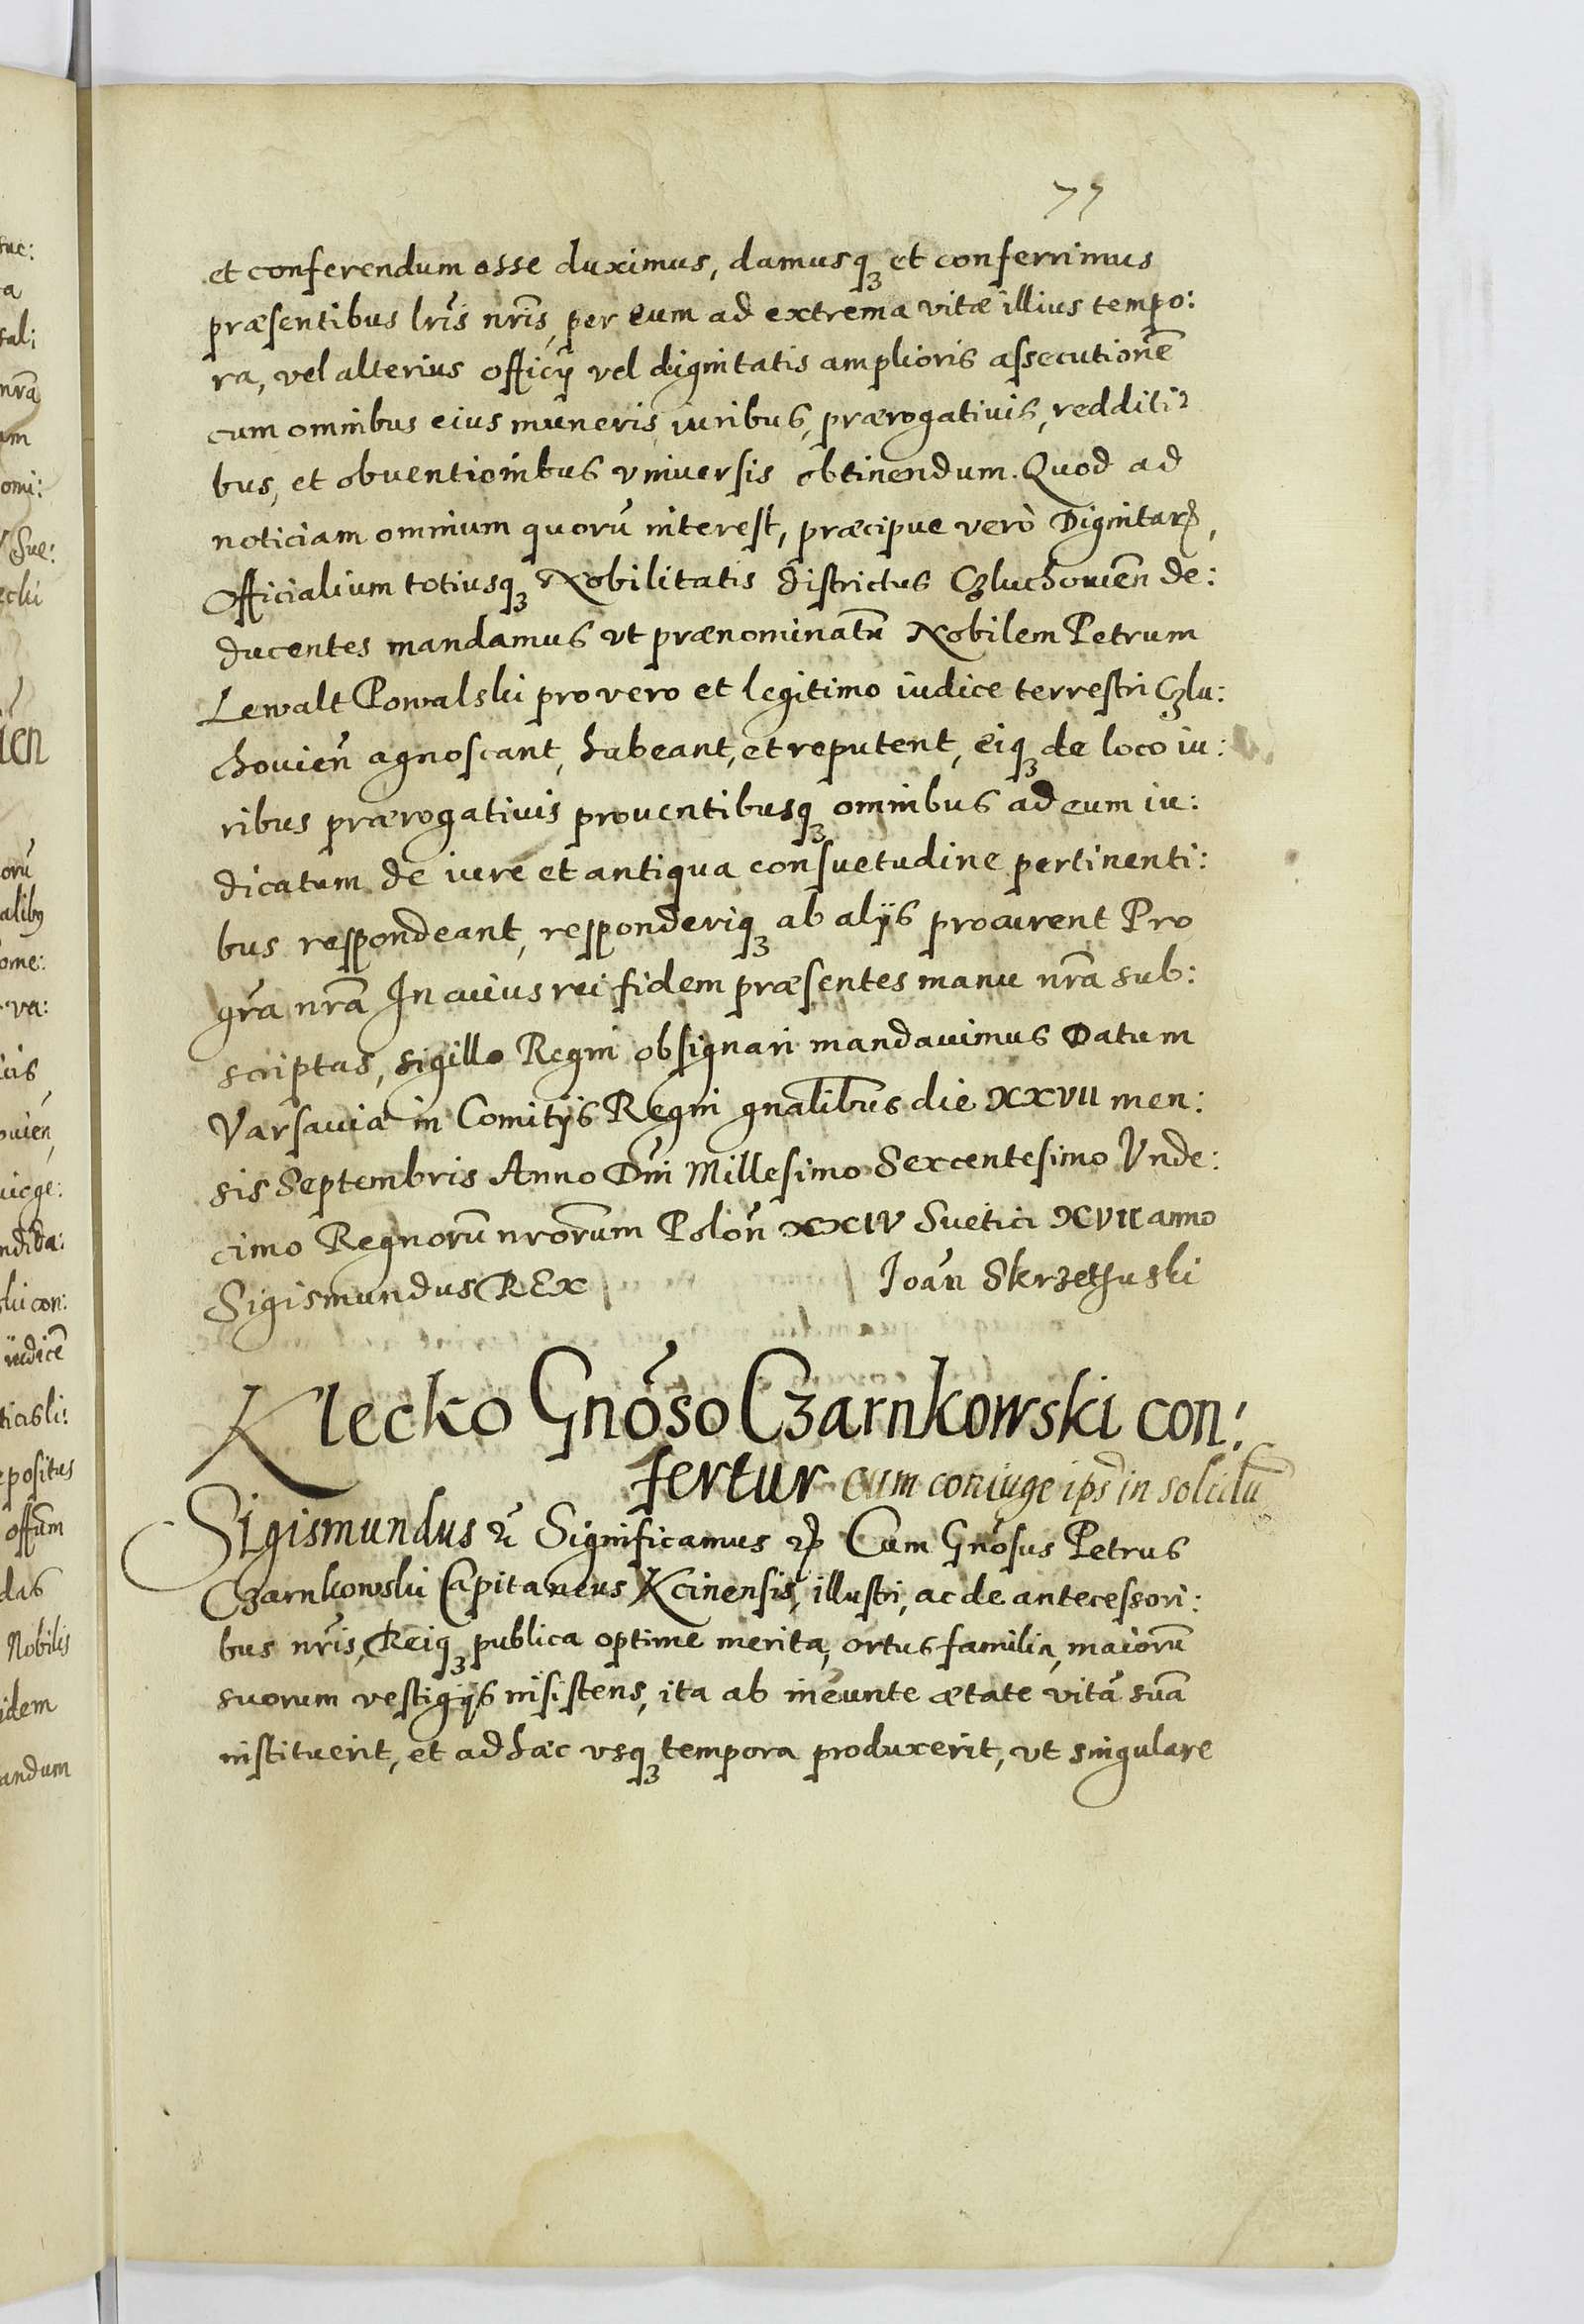 77
et conferendum esse duximus, damusq₃ et conferrimus
præsentibus lr̃is nr̃is, per eum ad extrema vitæ illius tempo:
ra, vel alterius officÿ vel dignitatis amplioris assecutionẽ
cum omnibus eius muneris iuribus, prærogativis, redditi:
bus, et obventionibus vniversis obtinendum. Quod ad
noticiam omnium quorũ interest, præcipue verò Dignitarꝝ,
Officialium totiusq₃ Nobilitatis districtus Czluchovien̄ de:
ducentes mandamus vt prænominatũ Nobilem Petrum
Lewalt Powalski pro vero et legitimo iudice terrestri Czlu:
chovien̄ agnoscant, habeant, et reputent, eiq₃ de loco iu:
ribus prærogativis proventibusq₃ omnibus ad eum iu:
dicatum de iure et antiqua consuetudine pertinenti:
bus respondeant, responderiq₃ ab alÿs procurent Pro
gr̃a nr̃a In cuius rei fidem præsentes manu nr̃a sub:
scriptas, sigillo Regni obsignari mandavimus Datum
Varsaviæ in Comitÿs Regni gn̄alibus die XXVII men:
sis Septembris Anno Dn̄i Millesimo Sexcentesimo Vnde:
cimo Regnorũ nrorum Polon̄ XXIV Suetici XVII anno
Sigismundus REx Joan̄ Skrzetuski
Klecko Gn̄oso Czarnkowski con:
fertur cum coniuge ips in solidũ
Sigismundus Significamus Cum Gn̄osus Petrus
Czarnkowski Capitaneus Kcinensis, illustri, ac de antecessori:
bus nr̃is, Reiq₃ publica optime merita, ortus familia, maiorũ
suorum vestigÿs insistens, ita ab ineunte ætate vitã suã
instituerit, et ad hæc vsq₃ tempora produxerit, vt singulare